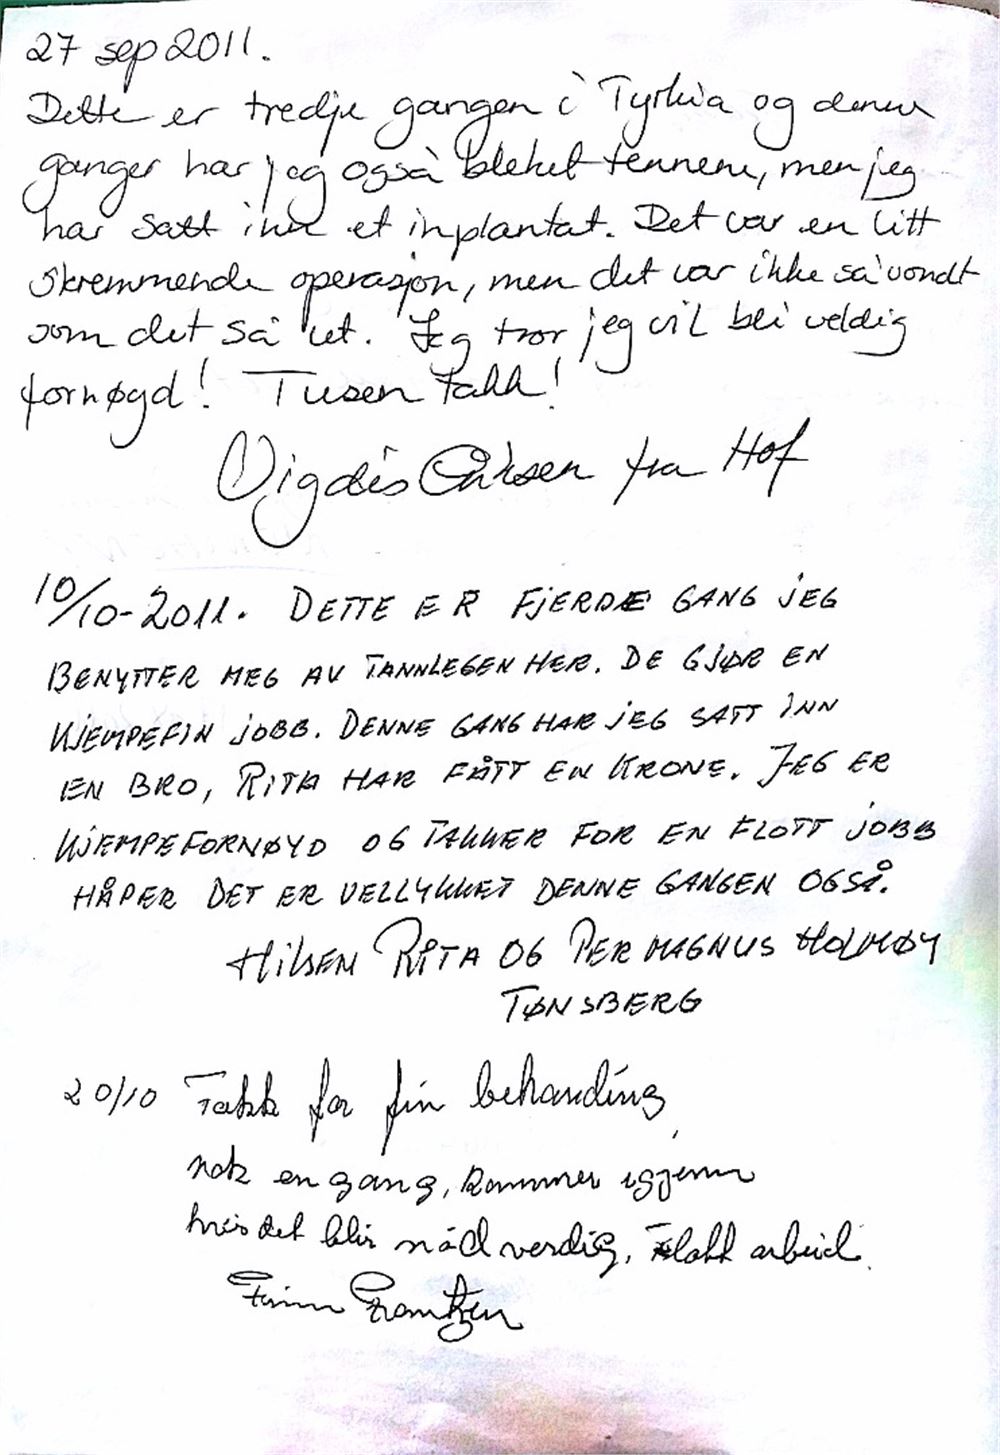 27 sep 2011.
Dette er tredje gangen i Tyrkia og denne
ganger har jeg også bleket tennene, men jeg
har satt inn et inplantat. Det var en litt
skremmende operasjon, men det var ikke så vondt
som det så ut. Jeg tror jeg vil bli veldig
fornøyd! Tusen takk!
Vigdis fra Hof
10/10-2011. DETTE ER FJERDE GANG JEG
BENYTTER MEG AV TANNLEGEN HER. DE GJØR EN
KJEMPEFIN JOBB. DENNE GANG HAR JEG SATT INN
EN BRO, RITA HAR FÅTT EN KRONE. JEG ER
KJEMPEFORNØYD OG TAKKER FOR EN FLOTT JOBB
HÅPER DET ER VELLYKKET DENNE GANGEN OGSÅ.
HILSEN RITA OG PER MAGNUS HOLMØY
TØNSBERG
20/10 Takk for fin behandling,
nok en gang, kommer igjenn
hvis det blir nødverdig, Flott arbeid.
Finn